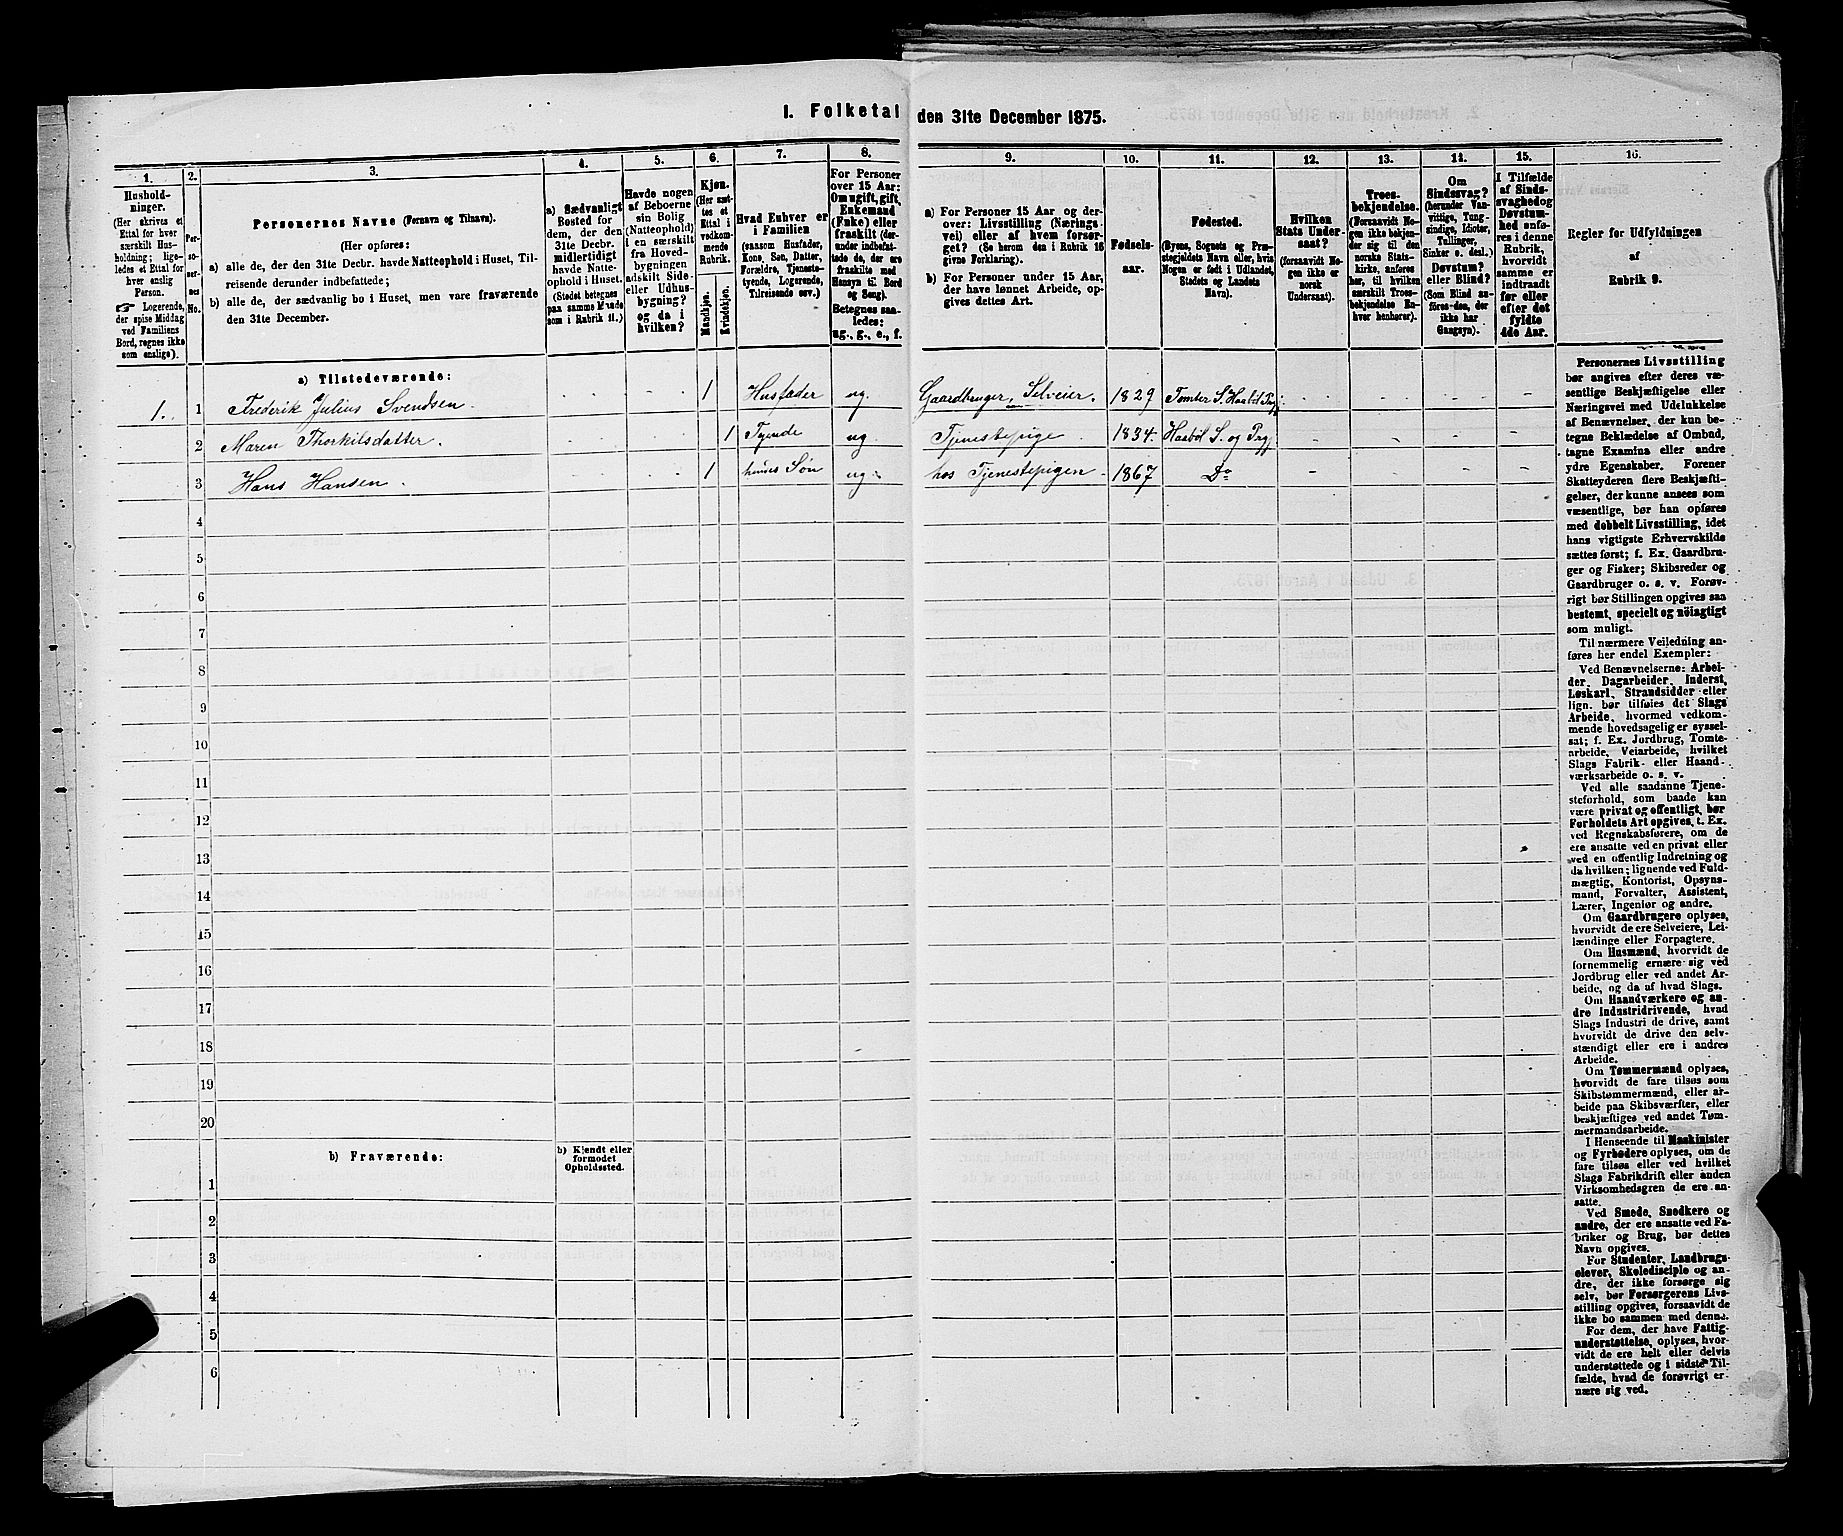 I. Folketal den 31te December 1875.
1.
Hushold-
ninger.
(Her skrives et
Ettal for hver
særskilt Hus-
holdning; lige-
ledes et Ettal for
hver enslig
Person.
☞ Logerende,
der spise Middag
ved Familiens
Bord, regnes ikke
som enslige).
2.
Per-
so-
ner-
nes
No.
3.
Personernes Navne (Fornavn og Tilnavn).
(Her opføres:
a) alle de, der den 31te Decbr. havde Natteophold i Huset, Til-
reisende derunder indbefattede;
b) alle de, der sædvanlig bo i Huset, men vare fraværende
den 31te December.
4.
a) Sædvanligt
Bosted for
dem, der den
31te Decbr.
midlertidigt
havde Natte-
ophold i Huset.
(Stedet betegnes
paa samme Maade
som i Rubrik 11.)
5.
Havde nogen
af Beboerne
sin Bolig
(Natteophold)
i en særskilt
fra Hoved-
bygningen
adskilt Side-
eller Udhus-
bygning?
og da i
hvilken?
6.
Kjøn.
(Her sæt-
tes et
Ettal i
vedkom-
mende
Rubrik.
Mandkjøn.
Kvindekjøn.
7.
Hvad Enhver er
i Familien
(saasom Husfader,
Kone, Søn, Datter,
Forældre, Tjeneste-
tyende, Logerende,
Tilreisende osv.)
8.
For Personer
over 15 Aar:
Om ugift, gift,
Enkemand
(Enke) eller
fraskilt (der-
under indbefat-
tede de, der ere
fraskilte med
Hensyn til Bord
og Seng).
Betegnes saa-
ledes:
ug., g., e., f.
9.
a) For Personer 15 Aar og der-
over: Livsstilling (Nærings-
vei) eller af hvem forsør-
get? (Se herom den i Rubrik 16
givne Forklaring).
b) For Personer under 15 Aar,
der have lønnet Arbeide, op-
gives dettes Art.
10.
Fødsels-
aar.
11.
Fødested.
(Byens, Sognets og Præ-
stegjeldets Navn eller, hvis
Nogen er født i Udlandet,
Stedets og Landets
Navn).
12.
Hvilken
Stats Under-
saat?
(forsaavidt No-
gen ikke er
norsk
Undersaat).
13.
Troes-
bekjendelse.
(Forsaavidt No-
gen ikke bekjen-
der sig til den
norske Stats-
kirke, anføres
her, til hvilken
særskilt Troes-
bekjendelse En-
hver henhører).
14.
Om
Sindssvag?
(herunder Van-
vittige, Tung-
sindige, Idioter,
Tullinger,
Sinker o. desl.)
Døvstum?
eller Blind?
(Som Blind an-
føres den, der
ikke har
Gangsyn).
15.
I Tilfælde
af Sinds-
svaghed og
Døvstum-
hed anfø-
res i denne
Rubrik,
hvorvidt
samme er
indtraadt
før eller
efter det
fyldte
4de Aar.
16.
Regler for Udfyldningen
af
Rubrik 9.
a) Tilstedeværende:
1. 1 Frederik Julius Svendsen. - - 1 Husfader ug. Gaardbruger, Selveier. 1829 Tomter S. Haabøl Prgj. - - - -
2 Maren Thorkilsdatter. - - 1 Tyende ug Tjenestepige 1834. Haabøl S. og Prgj. - - - -
3 Hans Hansen. - - 1 hendes Søn ug. hos Tjenestepigen 1867 Do - - - -
4
5
6
7
8
9
10
11
12
13
14
15
16
17
18
19
20
b) Fraværende:
b) Kjendt eller
formodet
Opholdssted.
1
2
3
4
5
6
Personernes Livsstilling
bør angives efter deres væ-
sentlige Beskjæftigelse eller
Næringsvei med Udelukkelse
af Benævnelser, der kun be-
tegne Beklædelse af Ombud,
tagne Examina eller andre
ydre Egenskaber. Forener
Skatteyderen flere Beskjæfti-
gelser, der kunne ansees som
væsentlige, bør han opføres
med dobbelt Livsstilling, idet
hans vigtigste Erhvervskilde
sættes først; f. Ex. Gaardbru-
ger og Fisker; Skibsreder og
Gaardbruger o. s. v. Forøv-
rigt bør Stillingen opgives saa
bestemt, specielt og nøiagtigt
som muligt.
Til nærmere Veiledning an-
føres her endel Exempler:
Ved Benævnelserne: Arbei-
der, Dagarbeider, Inderst,
Løskarl, Strandsidder eller
lign. bør tilføies det Slags
Arbeide, hvormed vedkom-
mende hovedsagelig er syssel-
sat; f. Ex. Jordbrug, Tomte-
arbeide, Veiarbeide, hvilket
Slags Fabrik- eller Haand-
værksarbeide o. s. v.
Ved alle saadanne Tjene-
steforhold, som baade kan
være privat og offentligt, bør
Forholdets Art opgives, t. Ex.
ved Regnskabsførere, om de
ere ansatte ved en privat eller
ved en offentlig Indretning og
da hvilken; lignende ved Fuld-
mægtig, Kontorist, Opsyns-
mand, Forvalter, Assistent,
Lærer, Ingeniør og andre.
Om Gaardbrugere oplyses,
hvorvidt de ere Selveiere, Lei-
lændinge eller Forpagtere.
Om Husmænd, hvorvidt de
fornemmelig ernære sig ved
Jordbrug eller ved andet Ar-
beide, og da af hvad Slags.
Om Haandværkere og an-
dre Industridrivende, hvad
Slags Industri de drive, samt
hvorvidt de drive den selv-
stændigt eller ere i andres
Arbeide.
Om Tømmermænd oplyses,
hvorvidt de fare tilsøs som
Skibstømmermænd, eller ar-
beide paa Skibsværfter, eller
beskjæftiges ved andet Tøm-
mermandsarbeide.
I Henseende til Maskinister
og Fyrbødere oplyses, om de
fare tilsøs eller ved hvilket
Slags Fabrikdrift eller anden
Virksomhedsgren de ere an-
satte.
Ved Smede, Snedkere og
andre, der ere ansatte ved Fa-
briker og Brug, bør dettes
Navn opgives.
For Studenter, Landbrugs-
elever, Skoledisciple og an-
dre, der ikke forsørge sig
selv, bør Forsørgerens Livs-
stilling opgives, forsaavidt de
ikke bo sammen med denne.
For dem, der have Fattig-
understøttelse, oplyses, hvor-
vidt de ere helt eller delvis
understøttede og i sidste Til-
fælde, hvad de forøvrigt er-
nære sig ved.